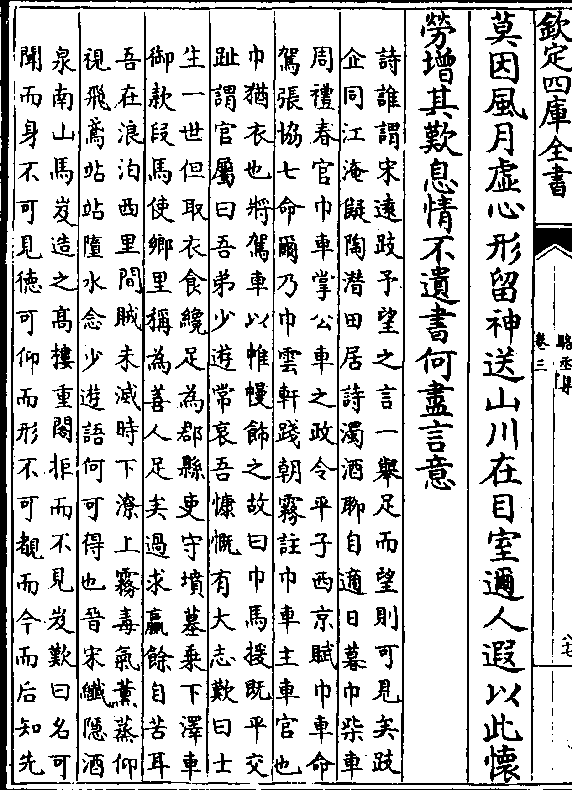 欽定四庫全書
駱丞集
卷三
莫因風月虛心形留神送山川在目室邇人遐以此懷
勞增其歎息情不遺書何盡言意
詩誰謂宋遠跂予望之言一舉足而望則可見矣跂
企同江淹擬陶潛田居詩濁酒聊自適日暮巾柴車
周禮春官巾車掌公車之政令平子西京賦巾車命
駕張協七命爾乃巾雲軒踐朝霧註巾車主車官也
巾猶衣也將駕車以帷幔飾之故曰巾馬援既平交
趾謂官屬曰吾弟少遊常哀吾慷慨有大志歎曰士
生一世但取衣食纔足為郡縣吏守墳墓乘下澤車
御款段馬使鄉里稱為善人足矣過求贏餘自苦耳
吾在浪泊西里間賊未滅時下潦上霧毒氣薰蒸仰
視飛鳶跕跕墮水念少遊語何可得也晉宋纖隱酒
泉南山馬岌造之高樓重閣拒而不見岌歎曰名可
聞而身不可見德可仰而形不可覩而今而后知先